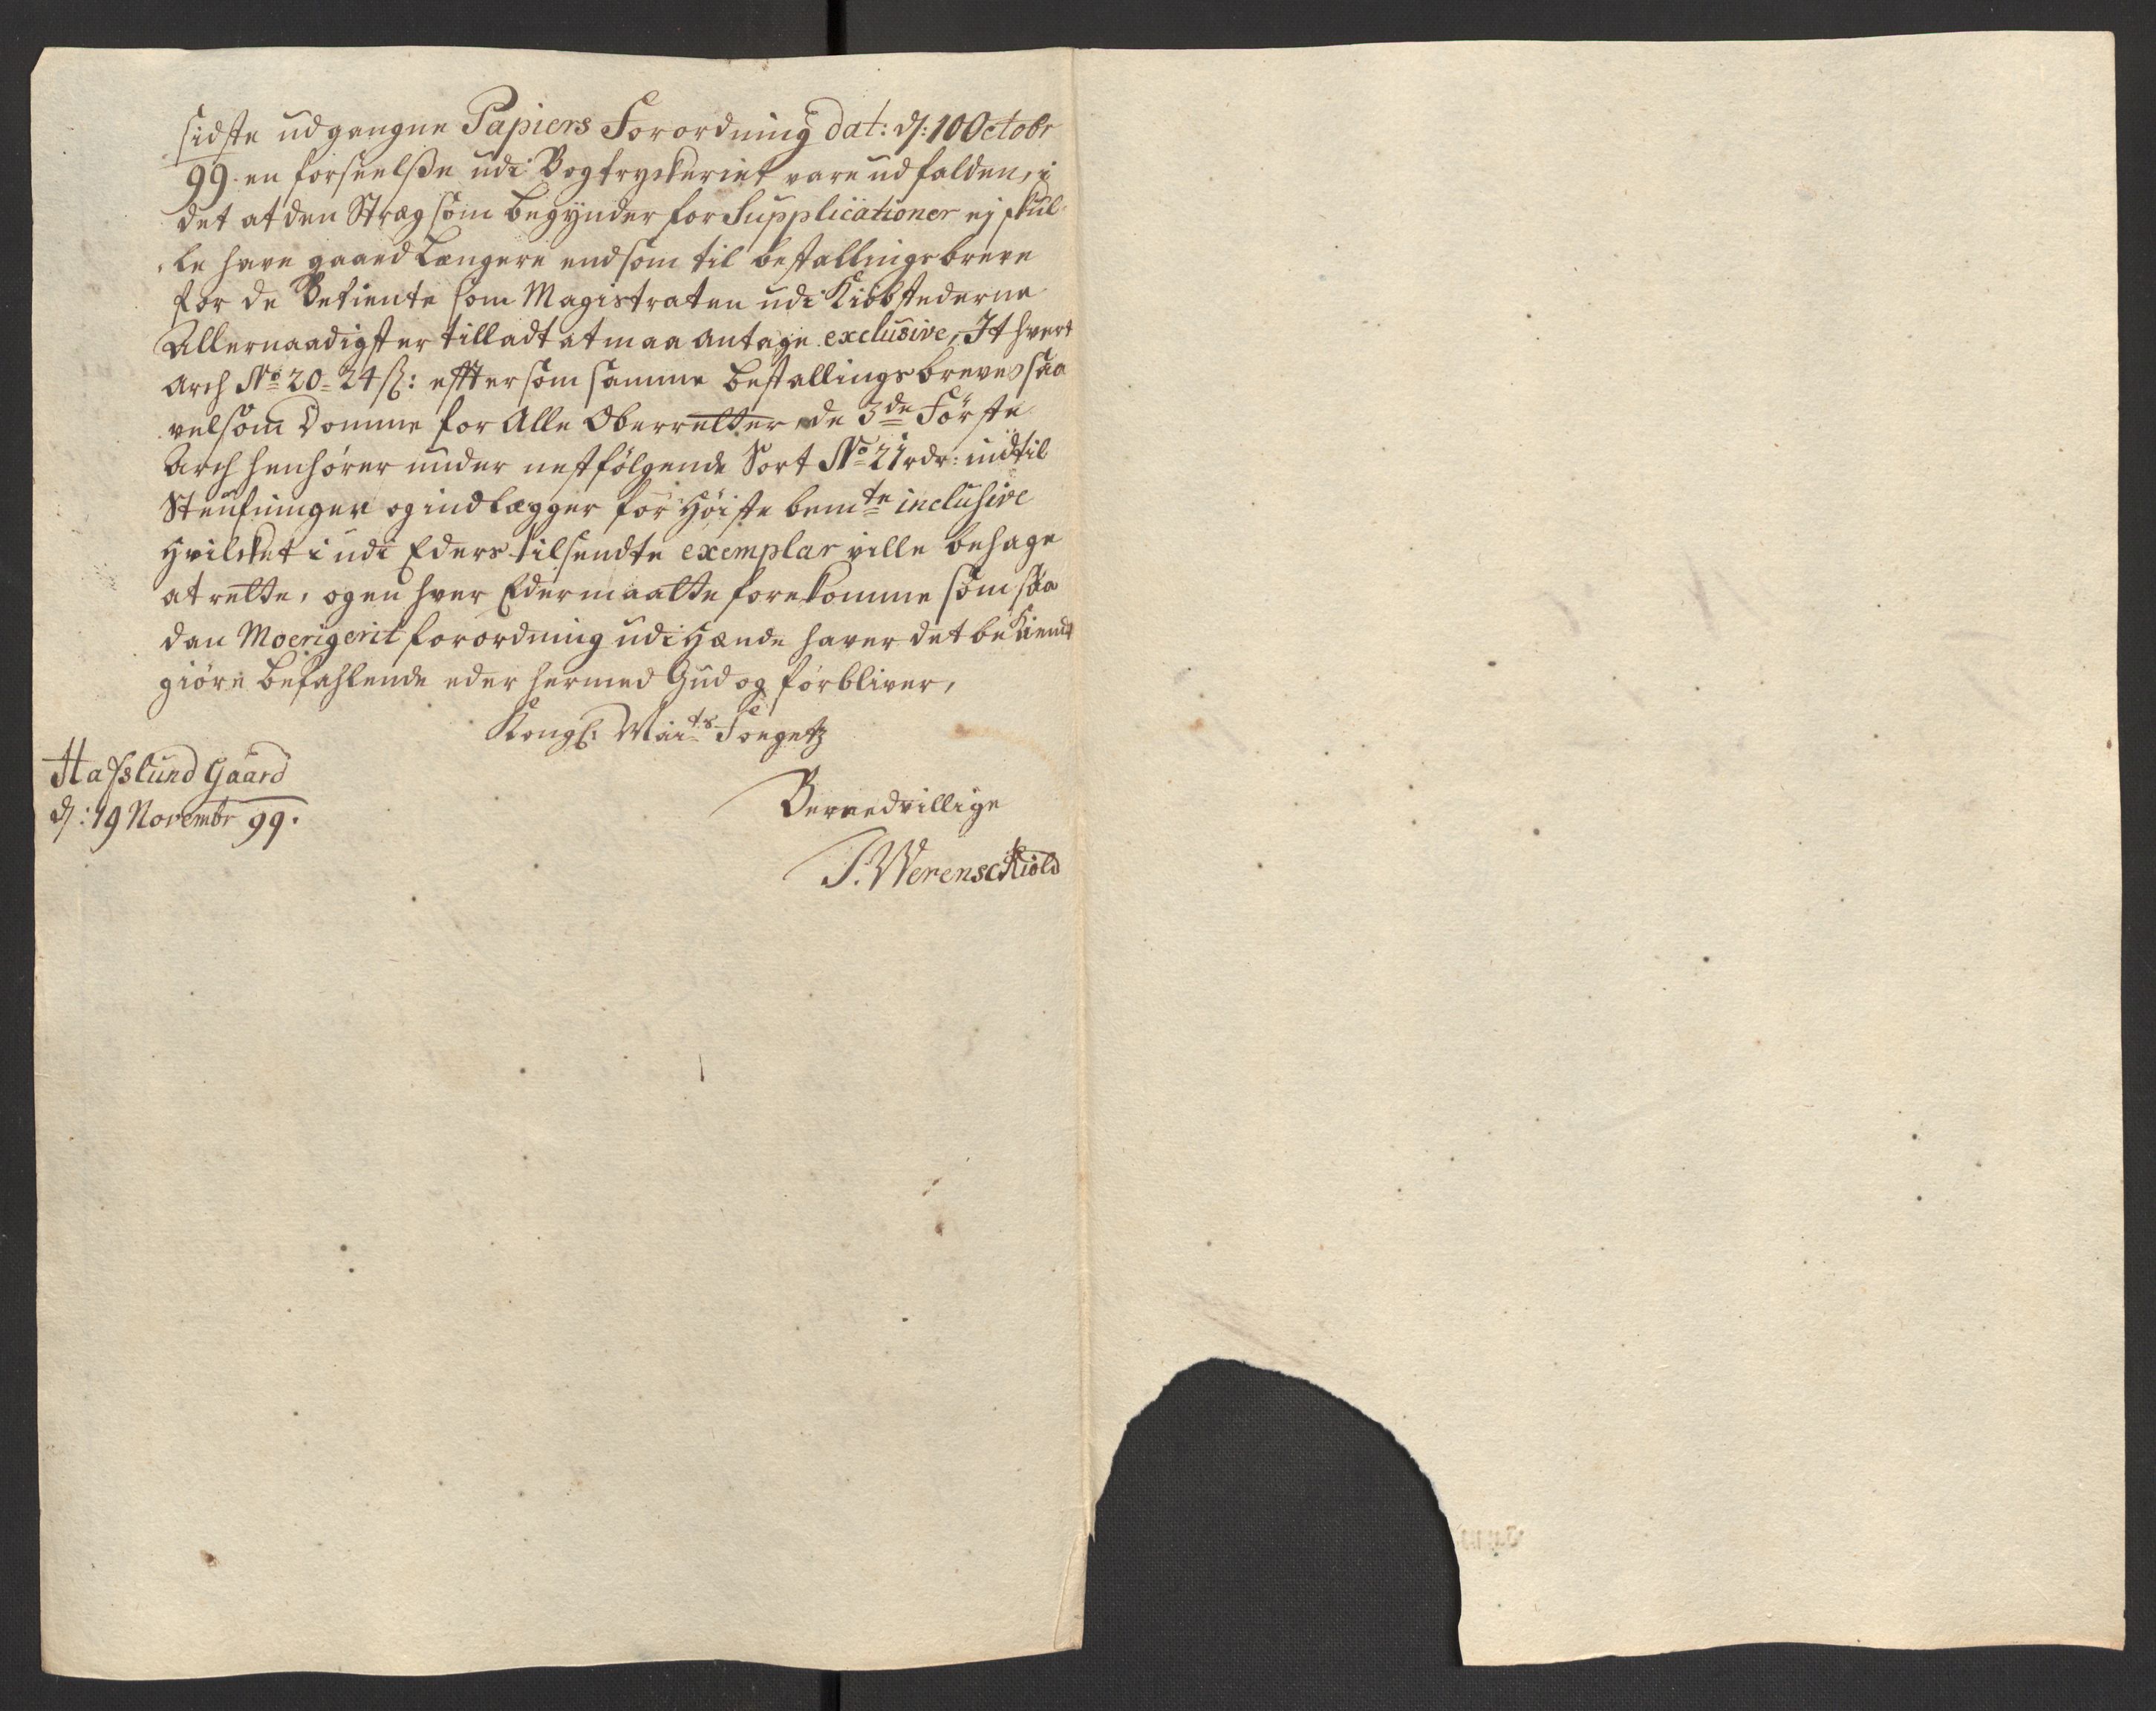 sidste udgangne Papiers Forordning dat: d: 10 Octobr
99. en forseelsse udi Bogtryckeriet vare udfalden, i
det at den Streg som begynder for Supplicationer ej skul-
le have gaaed Længere end som til bestallingsbreve
for de Betiente som Magistraten udi Kiöbstederne
Allernaadigst er tilladt at maa antage exclusive, It hvert
Arch No 20- 24 s: efftersom samme bestallingsbreve saa
velsom Domme for Alle Oberretter de 3de Förste
Arch henhörer under nestfölgende Sort No 21 rdr: indtil
Steufninger og indlægger for Höiste bemte inclusive
Hvilcket i udi Eders tilsendte exemplar ville behage
at rette, og en hver Eder maatte forekomme som saa
dan forordning udi Hænde haver det bekiendt
giöre befahlende eder hermed Gud og forbliver,
Kongl: Maits Fogetz
Hafslund Gaard
d: 19 Novembr 99.
Beredvillige
Werenschiold